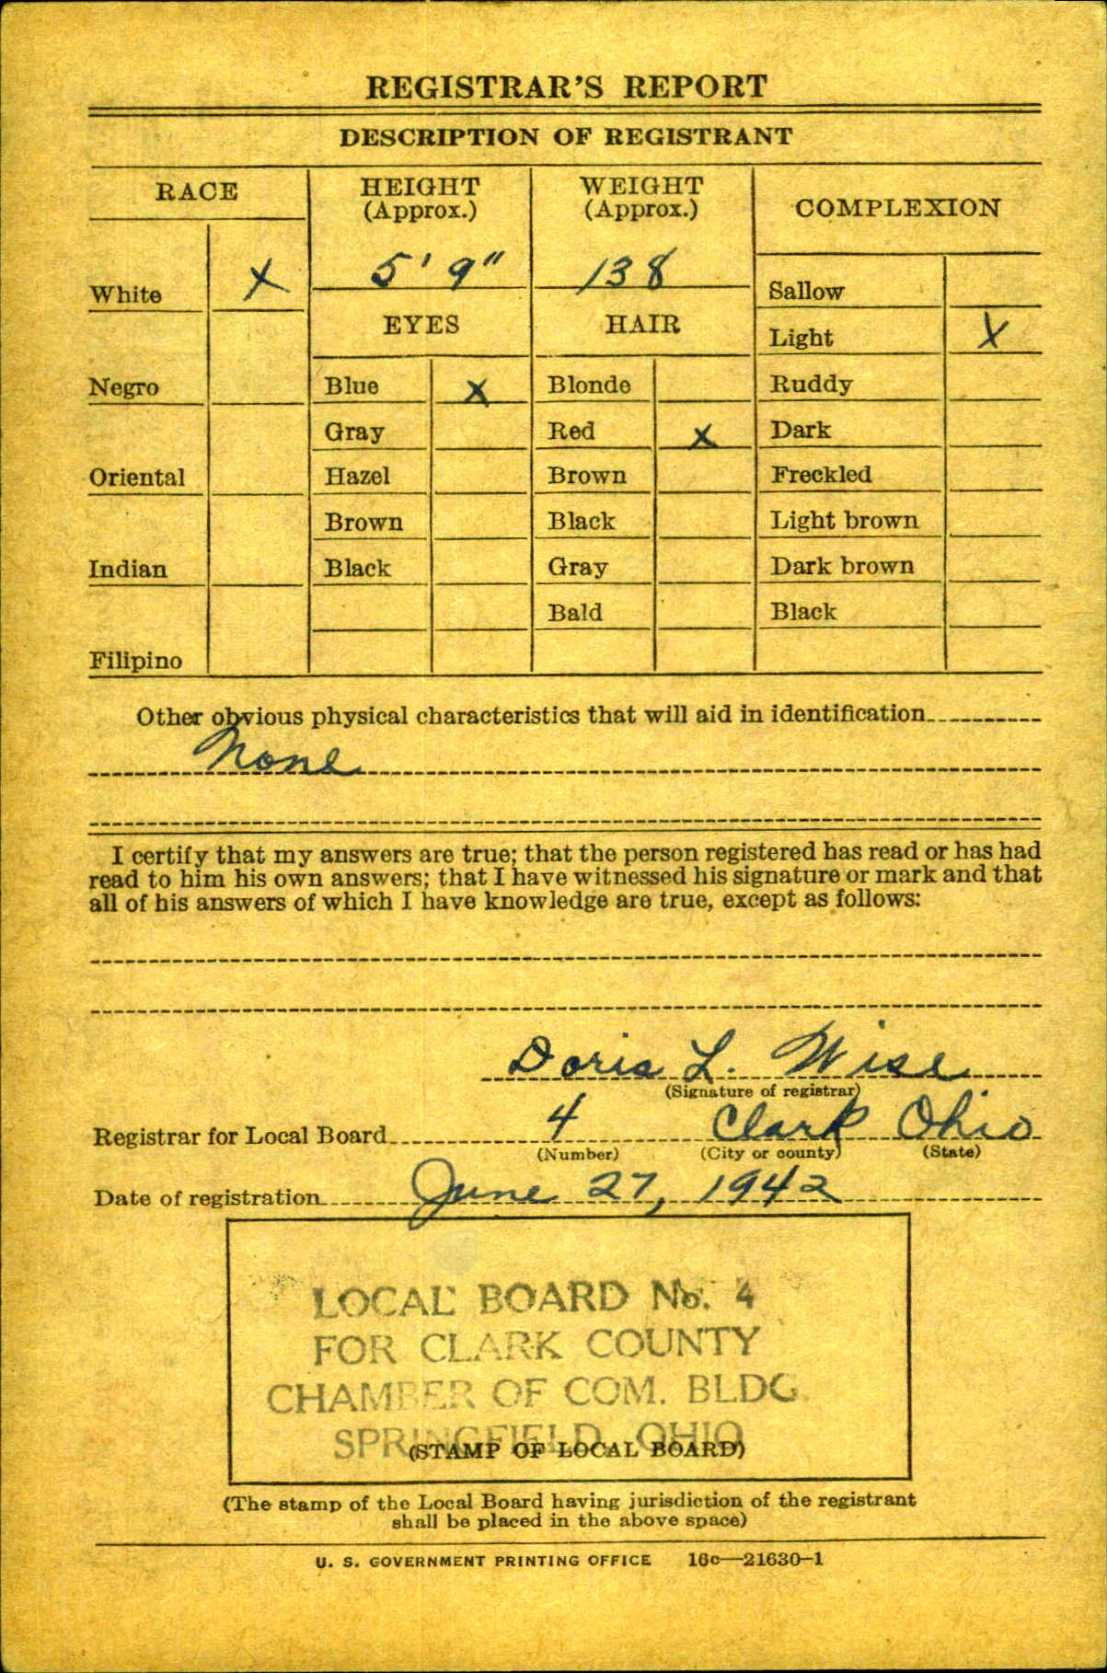 REGISTRAR'S REPORT
DESCRIPTION OF REGISTRANT
RACE
HEIGHT
(Approx.)
WEIGHT
(Approx.)
COMPLEXION
White X
5' 9"
138
Sallow
EYES
HAIR
Light X
Negro
Blue X
Blonde
Ruddy
Gray
Red X
Dark
Oriental
Hazel
Brown
Freckled
Brown
Black
Light brown
Indian
Black
Gray
Dark brown
Bald
Black
Filipino
Other obvious physical characteristics that will aid in identification
None
I certify that my answers are true; that the person registered has read or has had
read to him his own answers; that I have witnessed his signature or mark and that
all of his answers of which I have knowledge are true, except as follows:
Doris L. Wise
(Signature of registrar)
Registrar for Local Board 4 Clark Ohio
(Number) (City or county) (State)
Date of registration June 27, 1942
LOCAL BOARD No. 4
FOR CLARK COUNTY
CHAMBER OF COM. BLDG.
SPRINGFIELD, OHIO
(STAMP OF LOCAL BOARD)
(The stamp of the Local Board having jurisdiction of the registrant
shall be placed in the above space)
U. S. GOVERNMENT PRINTING OFFICE 16c—21630-1